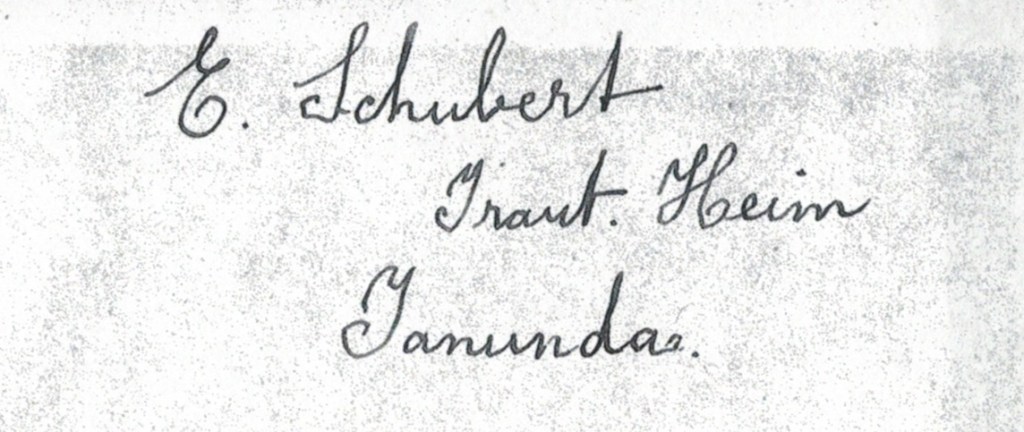 E. Schubert
Traut. Heim
Tanunda.